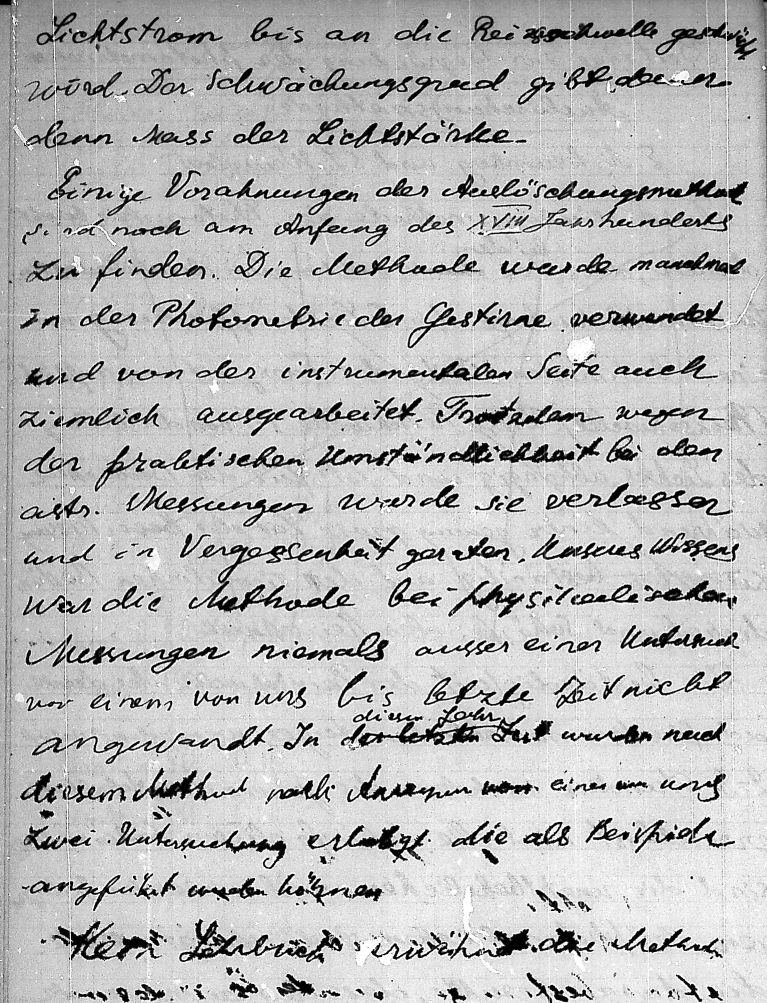 Lichtstrom bis an die Reizschwelle geschwächt
wird. Der Schwächungsgrad gibt dann
denn Mass der Lichtstärke.
Einige Vorahnungen der Auslöschungsmethode
sind noch am Anfang des XVIII Jahrhunderts
zu finden. Die Methode wurde manchmal
in der Photometrie der Gestirne verwendet
und von der instrumentalen Seite auch
ziemlich ausgearbeitet. Trotzdem wegen
der praktischen Umständlichkeit bei den
astr. Messungen wurde sie verlassen
und in Vergessenheit geraten. Unseres Wissens
war die Methode bei physikalischen
Messungen niemals ausser einer Untersuch
von einem von uns bis letzte Zeit nicht
angewandt. In diesem Jahre wurden nach
diesem Method nach einem von uns
zwei Untersuchung erledigt die als Beispiele
angeführt werden können
Kein Lehrbuch erwähnt die Methode